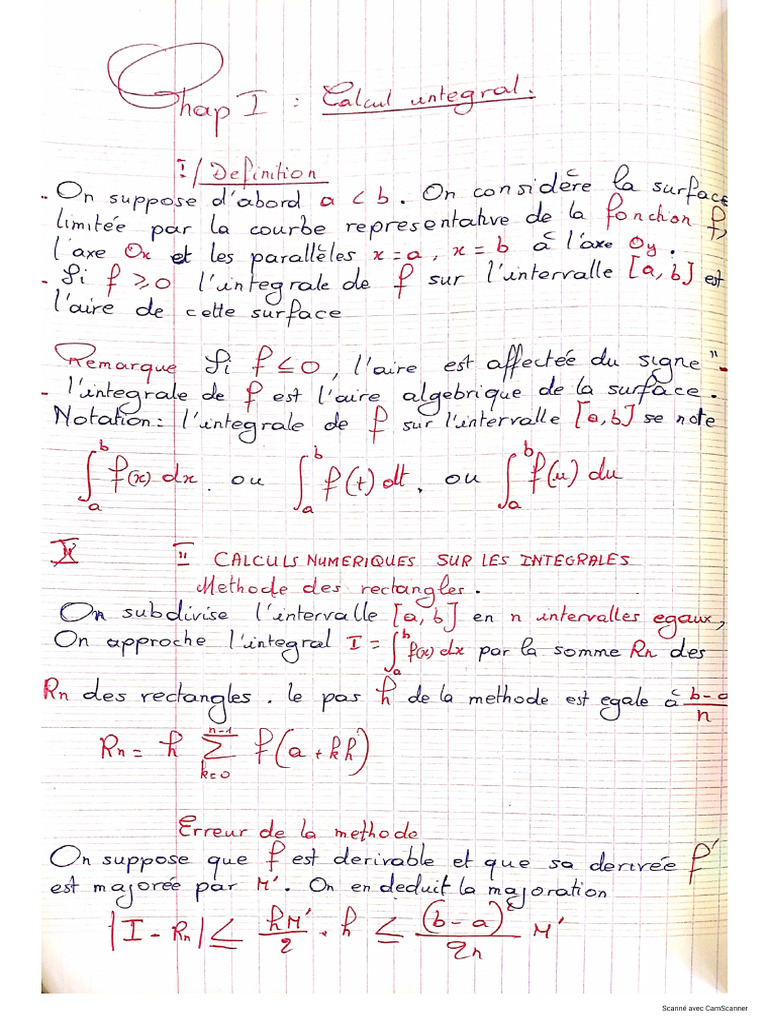 Chap I : Calcul integral.
I/ Definition
- On suppose d'abord a < b. On considère la surface
limitée par la courbe representative de la fonction f,
l'axe Ox et les parallèles x=a, x=b à l'axe Oy.
- Si f ⩾ 0 l'integrale de f sur l'intervalle [a,b] est
l'aire de cette surface
Remarque Si f ≤ 0, l'aire est affectée du signe "-
- l'integrale de f est l'aire algebrique de la surface.
Notation: l'integrale de f sur l'intervalle [a,b] se note
∫_a^b f(x) dx. ou ∫_a^b f(t) dt, ou ∫_a^b f(u) du
II" CALCULS NUMERIQUES SUR LES INTEGRALES
Methode des rectangles.
On subdivise l'intervalle [a,b] en n intervalles egaux,
On approche l'integral I = ∫_a^b f(x) dx par la somme Rn des
Rn des rectangles. le pas h de la methode est egale à b-a/n
Rn = h ∑_{k=0}^{n-1} f(a + kh)
Erreur de la methode
On suppose que f est derivable et que sa derivée f'
est majorée par M'. On en deduit la majoration
|I - Rn| ≤ hM'/2 . h ≤ (b-a)²/2n M'
Scanné avec CamScanner